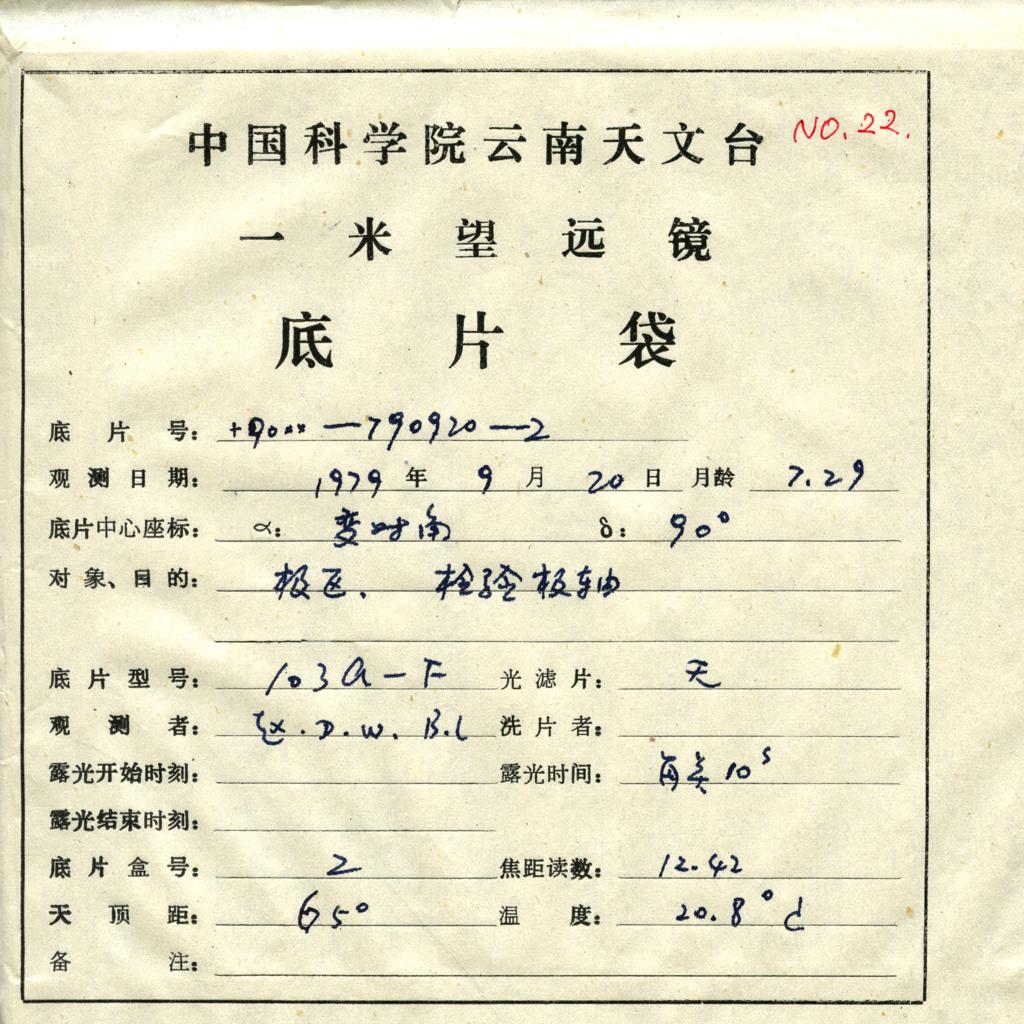 中国科学院云南天文台 NO.22.
一米望远镜
底片袋
底片号: +90** —790920—2
观测日期: 1979年 9月 20日 月龄 7.29
底片中心座标: α: 变时角 δ: 90°
对象、目的: 极区. 检验极轴
底片型号: 103a-F 光滤片: 无
观测者: 赵.D.W. B.L 洗片者:
露光开始时刻: 露光时间: 每类10s
露光结束时刻:
底片盒号: 2 焦距读数: 12.42
天顶距: 65° 温度: 20.8°C
备注: